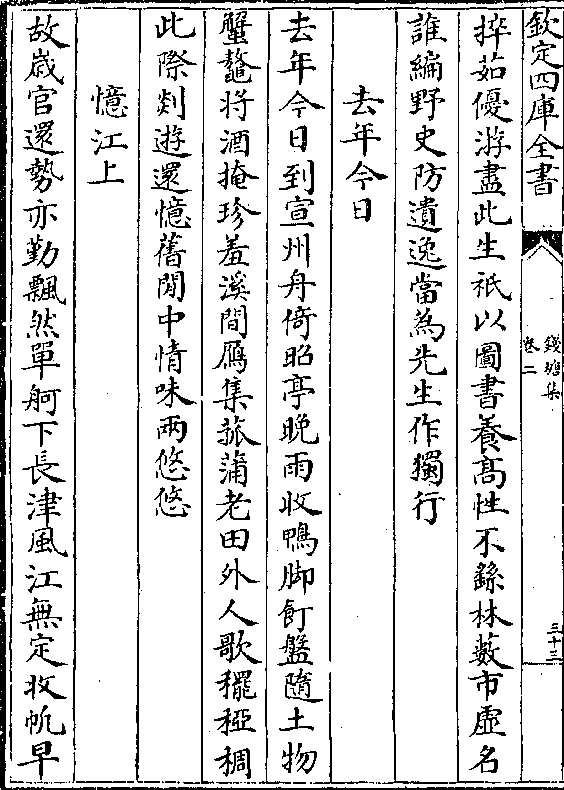 欽定四庫全書
錢塘集
卷二
三十三
捽茹優游盡此生祇以圖書養髙性不繇林藪市虛名
誰編野史防遺逸當為先生作獨行
去年今日
去年今日到宣州舟倚昭亭晚雨收鴨脚飣盤隨土物
蟹鼇將酒掩珍羞溪間鴈集菰蒲老田外人歌䆉稏稠
此際剡遊還憶舊閒中情味兩悠悠
憶江上
故歳官還勢亦勤飄然單舸下長津風江無定收帆早